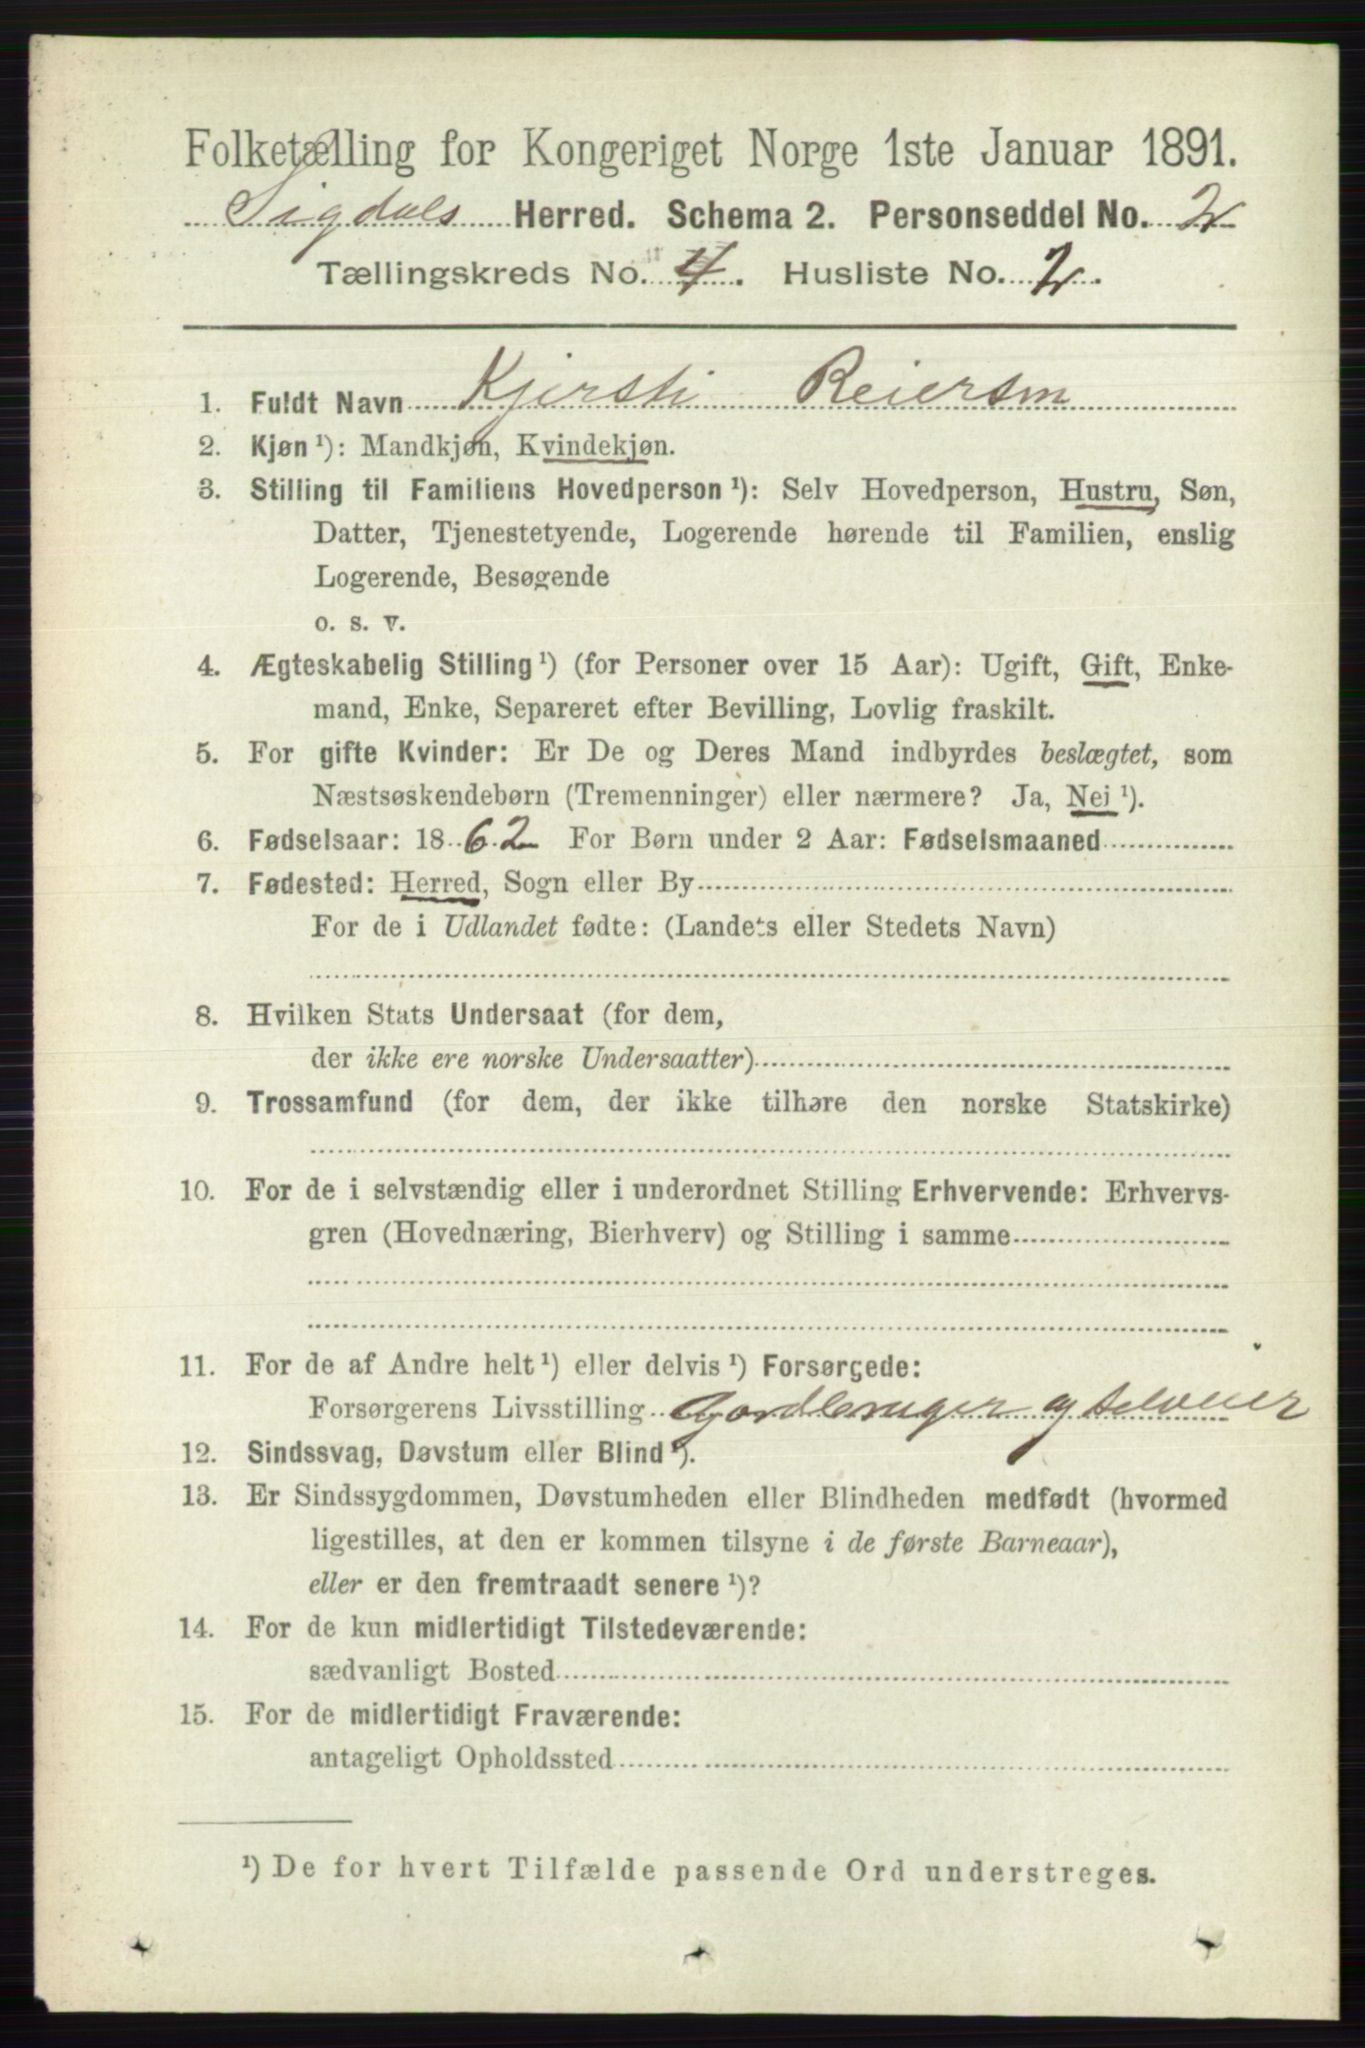 Folketælling for Kongeriget Norge 1ste Januar 1891.
Sigdals Herred. Schema 2. Personseddel No. 2
Tællingskreds No. 4. Husliste No. 2.
1. Fuldt Navn Kjersti Reiersen
2. Kjøn ¹): Mandkjøn, Kvindekjøn.
3. Stilling til Familiens Hovedperson ¹): Selv Hovedperson, Hustru, Søn,
Datter, Tjenestetyende, Logerende hørende til Familien, enslig
Logerende, Besøgende
o. s. v.
4. Ægteskabelig Stilling ¹) (for Personer over 15 Aar): Ugift, Gift, Enke-
mand, Enke, Separeret efter Bevilling, Lovlig fraskilt.
5. For gifte Kvinder: Er De og Deres Mand indbyrdes beslægtet, som
Næstsøskendebørn (Tremenninger) eller nærmere? Ja, Nei ¹).
6. Fødselsaar: 1862 For Børn under 2 Aar: Fødselsmaaned
7. Fødested: Herred, Sogn eller By
For de i Udlandet fødte: (Landets eller Stedets Navn)
8. Hvilken Stats Undersaat (for dem,
der ikke ere norske Undersaatter)
9. Trossamfund (for dem, der ikke tilhøre den norske Statskirke)
10. For de i selvstændig eller i underordnet Stilling Erhvervende: Erhvervs-
gren (Hovednæring, Bierhverv) og Stilling i samme
11. For de af Andre helt ¹) eller delvis ¹) Forsørgede:
Forsørgerens Livsstilling Gardbruger og Selveier
12. Sindssvag, Døvstum eller Blind ¹).
13. Er Sindssygdommen, Døvstumheden eller Blindheden medfødt (hvormed
ligestilles, at den er kommen tilsyne i de første Barneaar),
eller er den fremtraadt senere ¹)?
14. For de kun midlertidigt Tilstedeværende:
sædvanligt Bosted
15. For de midlertidigt Fraværende:
antageligt Opholdssted
¹) De for hvert Tilfælde passende Ord understreges.